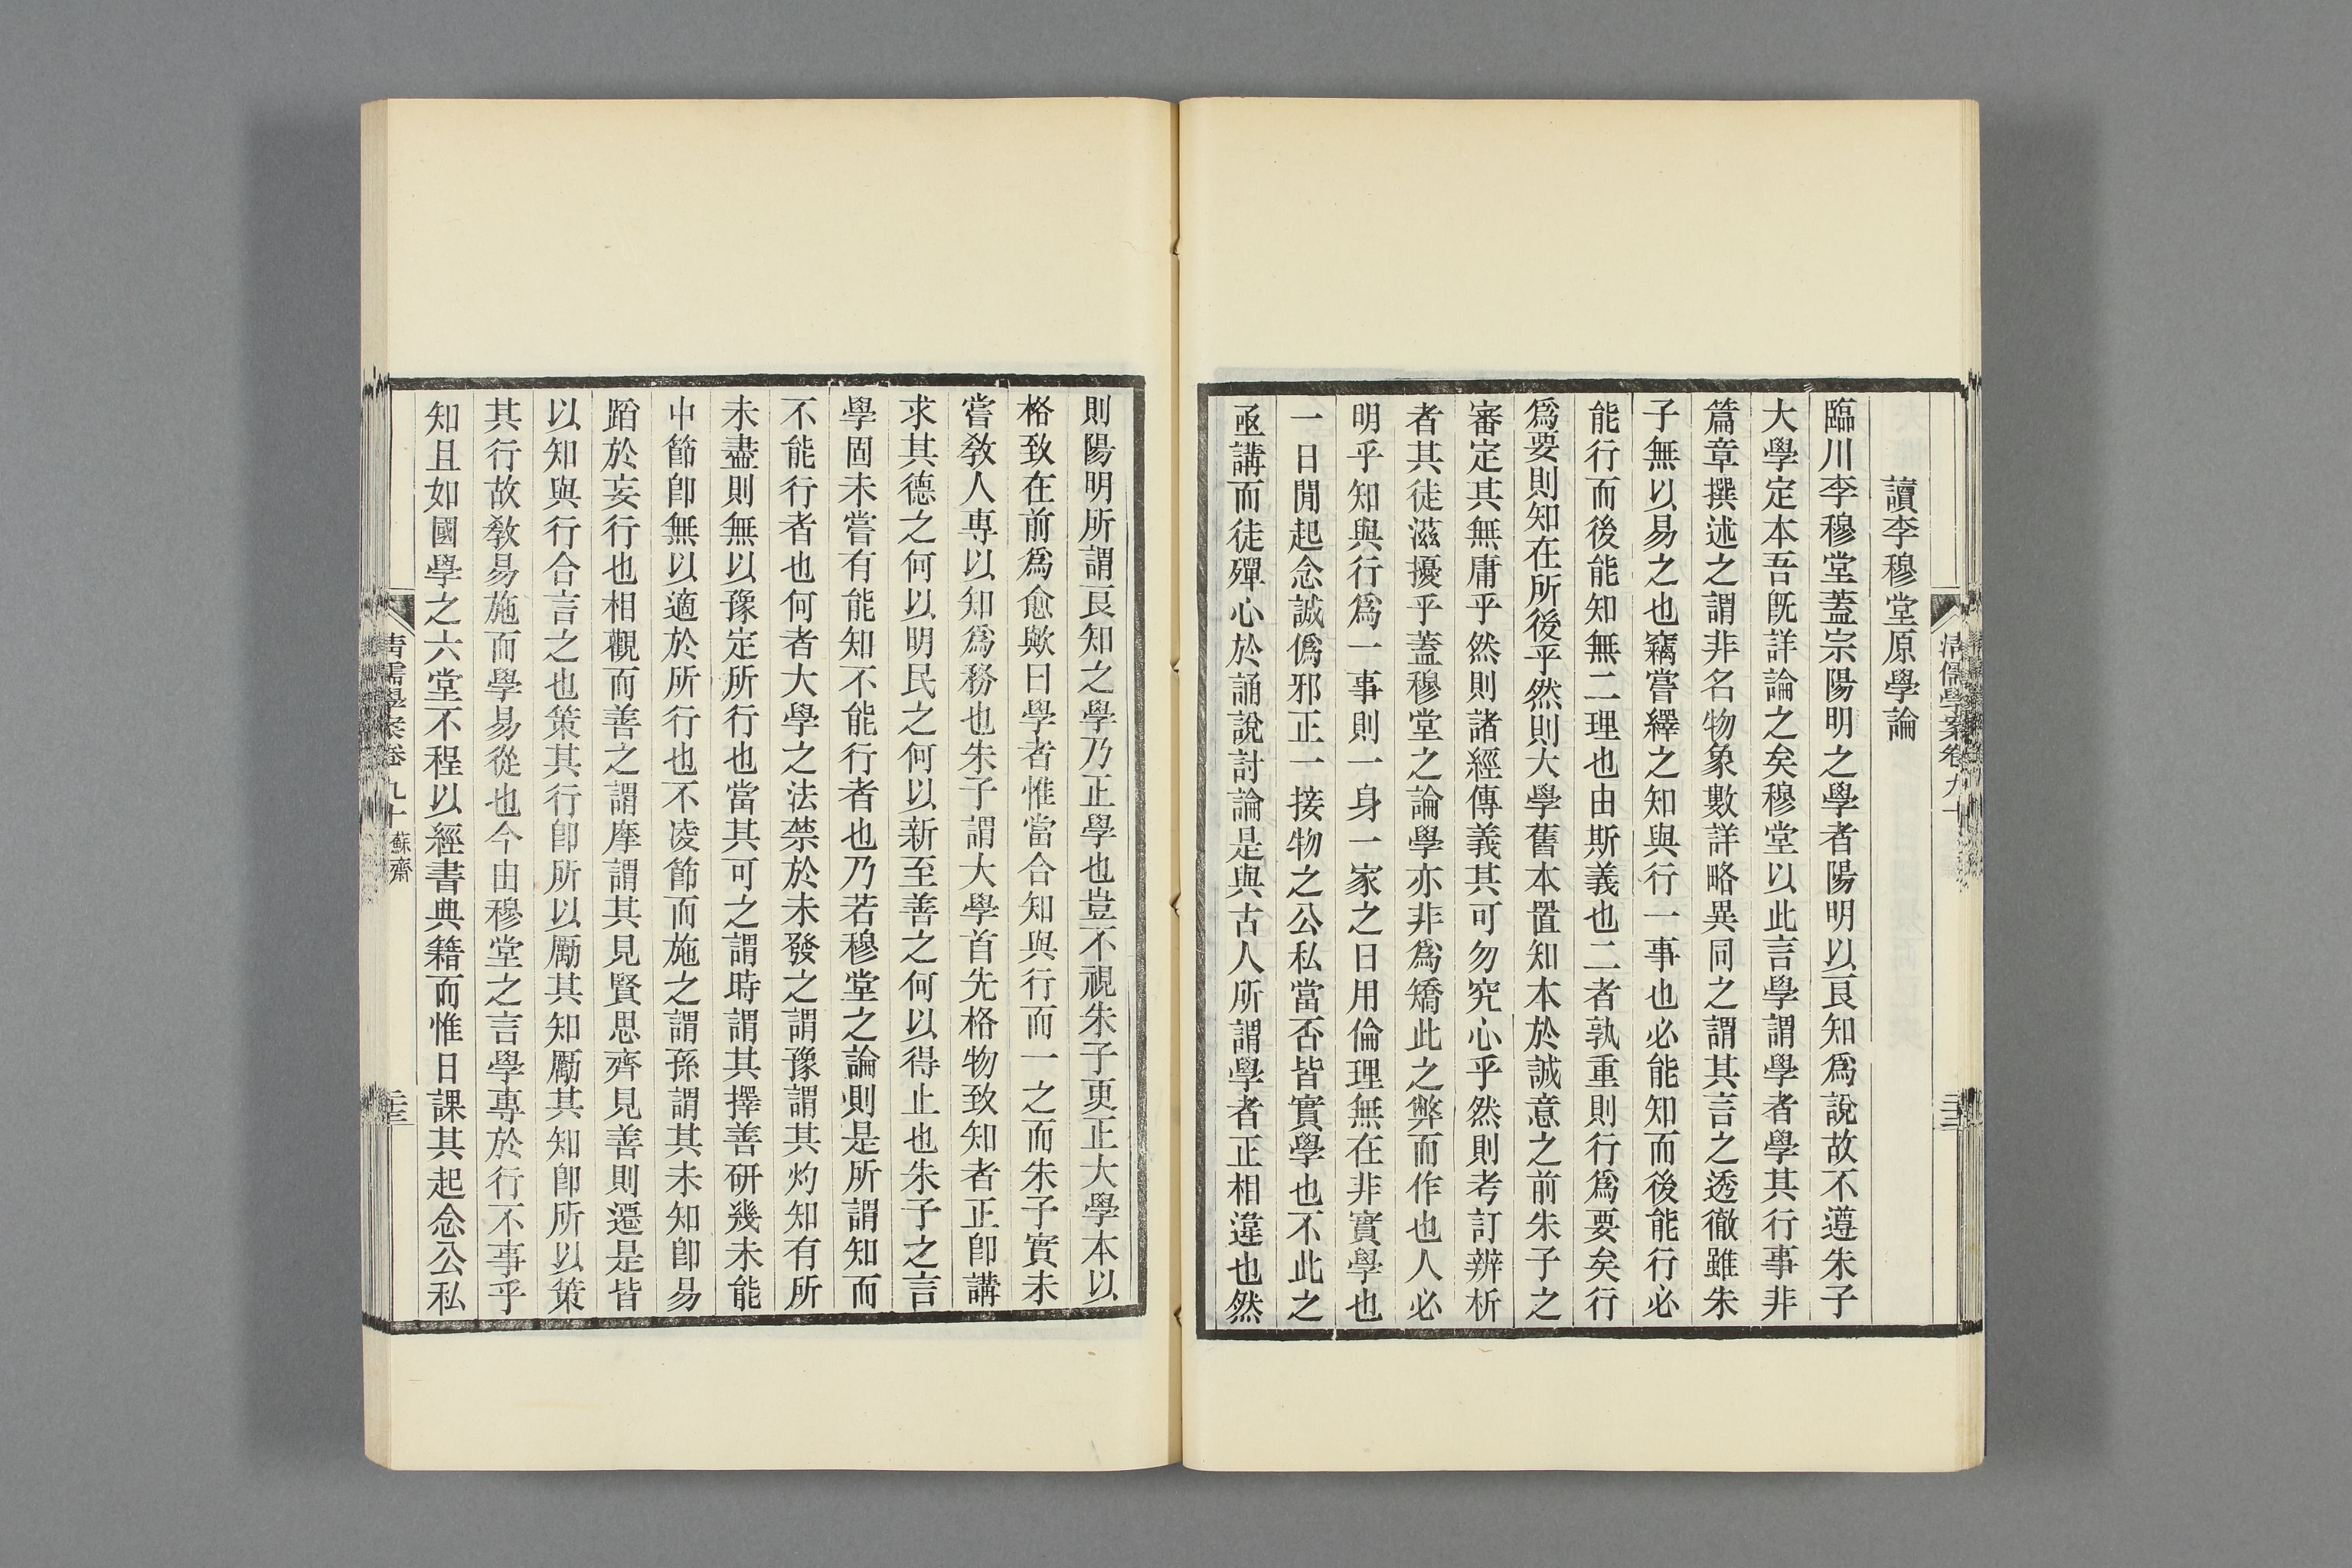 清儒學案卷九十
二十二
讀李穆堂原學論
臨川李穆堂蓋宗陽明之學者陽明以良知爲說故不遵朱子
大學定本吾旣詳論之矣穆堂以此言學謂學者學其行事非
篇章撰述之謂非名物象數詳略異同之謂其言之透徹雖朱
子無以易之也竊嘗繹之知與行一事也必能知而後能行必
能行而後能知無二理也由斯義也二者孰重則行爲要矣行
爲要則知在所後乎然則大學舊本置知本於誠意之前朱子之
審定其無庸乎然則諸經傳義其可勿究心乎然則考訂辨析
者其徒滋擾乎蓋穆堂之論學亦非爲矯此之弊而作也人必
明乎知與行爲一事則一身一家之日用倫理無在非實學也
一日閒起念誠僞邪正一接物之公私當否皆實學也不此之
亟講而徒殫心於誦說討論是與古人所謂學者正相違也然
則陽明所謂良知之學乃正學也豈不視朱子更正大學本以
格致在前爲愈歟曰學者惟當合知與行而一之而朱子實未
嘗敎人專以知爲務也朱子謂大學首先格物致知者正卽講
求其德之何以明民之何以新至善之何以得止也朱子之言
學固未嘗有能知不能行者也乃若穆堂之論則是所謂知而
不能行者也何者大學之法禁於未發之謂豫謂其灼知有所
未盡則無以豫定所行也當其可之謂時謂其擇善研幾未能
中節卽無以適於所行也不凌節而施之謂孫謂其未知卽易
蹈於妄行也相觀而善之謂摩謂其見賢思齊見善則遷是皆
以知與行合言之也策其行卽所以勵其知勵其知卽所以策
其行故敎易施而學易從也今由穆堂之言學專於行不事乎
知且如國學之六堂不程以經書典籍而惟日課其起念公私
清儒學案卷九十 蘇齋
二十三